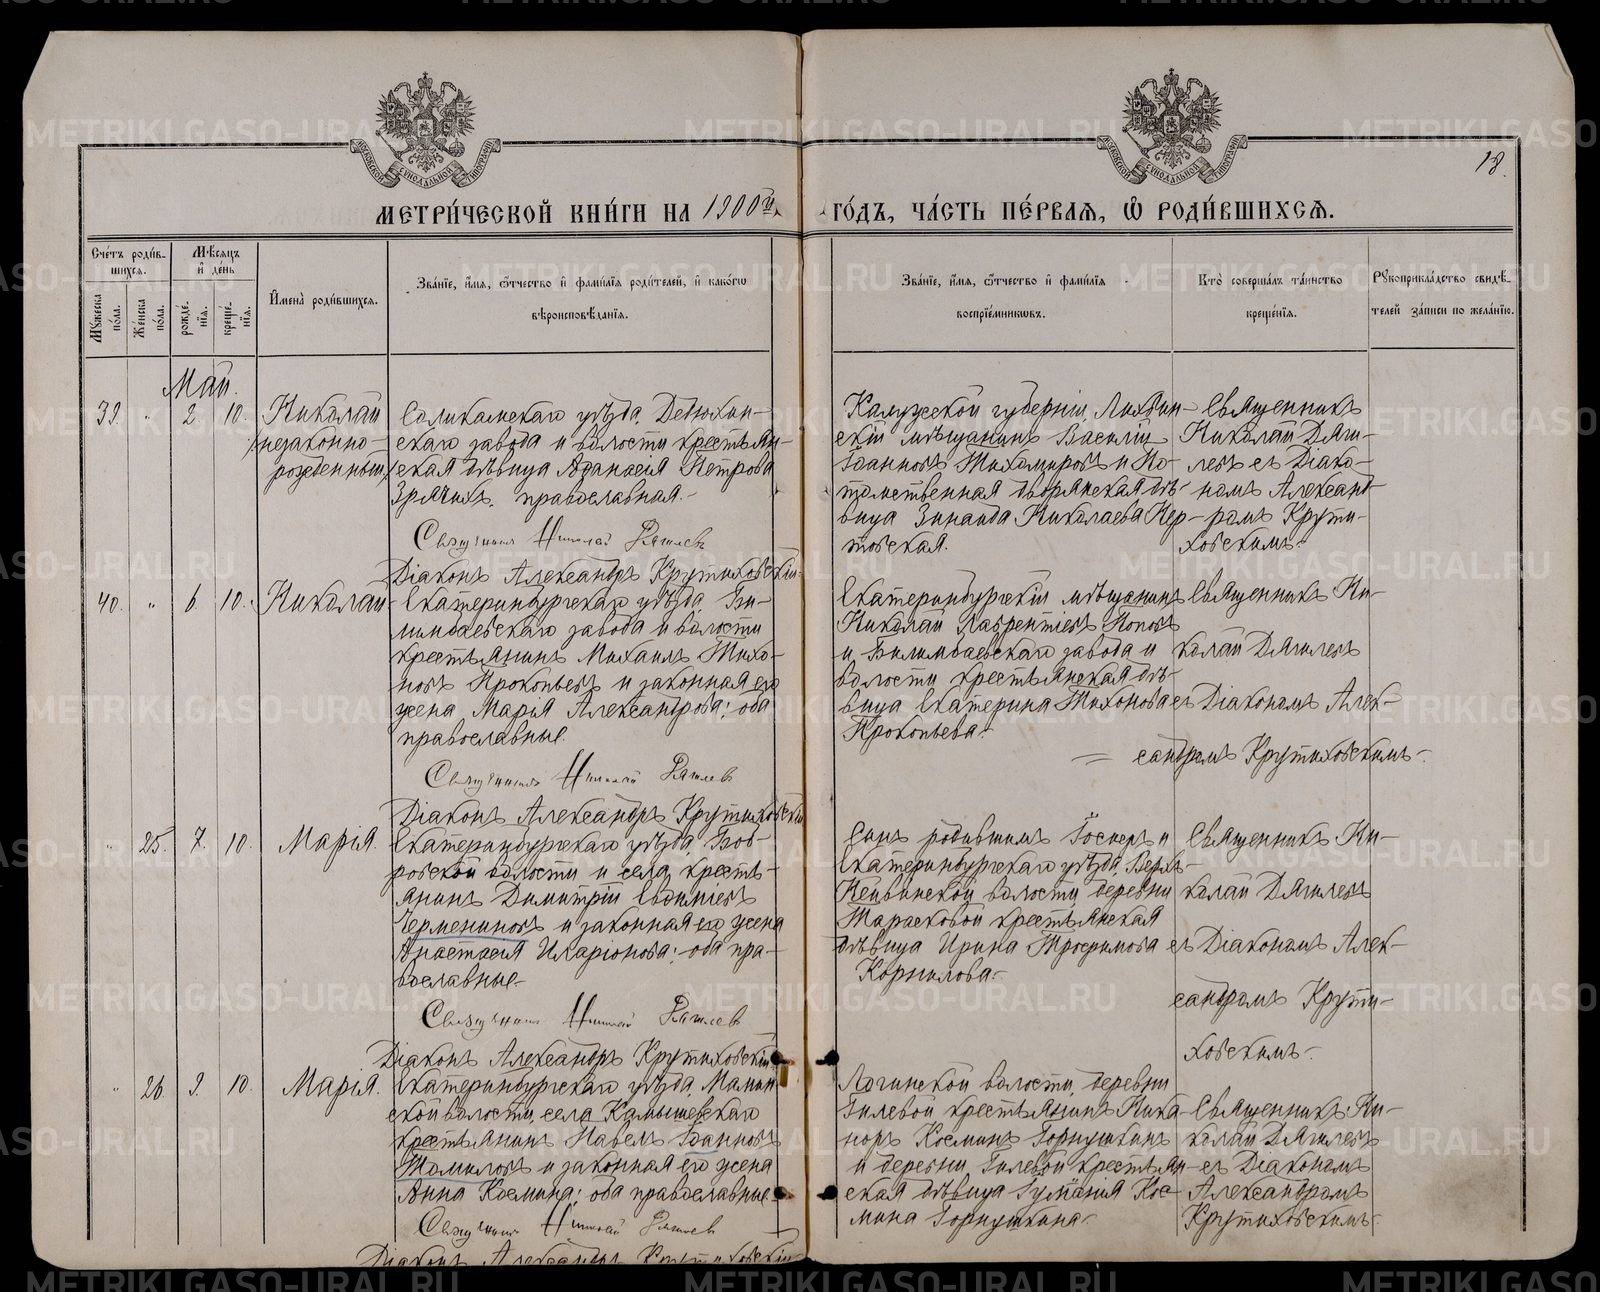 18.
МЕТРИ́ЧЕСКОЙ КНИ́ГИ НА 1900й
ГО́ДЪ, ЧА́СТЬ ПЕ́РВАЯ, Ѡ РОДИ́ВШИХСЯ.
Сче́тъ роди́в-
шихся.
Мꙋ́жеска по́ла.
Же́нска по́ла.
Мѣ́сяцъ
и де́нь
рожде́нїя.
креще́нїя.
И҆мена̀ роди́вшихся.
Зва́нїе, и҆́мя, ѻ҆́тчество и҆ фами́лїя роди́телей, и҆ како́гѡ
вѣроисповѣ́данїя.
Зва́нїе, и҆́мя, ѻ҆́тчество и҆ фами́лїя
воспрїе́мникѡвъ.
Кто̀ соверша́лъ та́инство
креще́нїя.
Рꙋкоприкла́дство свидѣ́-
телей за́писи по жела́нїю.
Май.
39. " 2. 10.
Николай
незаконно-
рожденный
Соликамскаго уѣзда, Дедюхин-
скаго завода и волости крестьян-
ская дѣвица Аѳанасія Петрова
Зрячихъ, православная.-
Священникъ Николай Дягилев
Діаконъ Александръ Крутиховскій
Калужской губерніи, Лихвин-
скій мѣщанинъ Василій
Іоанновъ Тихомировъ и По-
томственная дворянская дѣ-
вица Зинаида Николаева Пер-
товская.
Священникъ
Николай Дяги-
левъ съ Діако-
номъ Алексан-
дромъ Крути-
ховскимъ.-
40. " 6. 10.
Николай
Екатеринбургскаго уѣзда, Би-
лимбаевскаго завода и волости
крестьянинъ Михаилъ Тихо-
новъ Прокопьевъ и законная его
жена Марья Александрова; оба
православные.
Священникъ Николай Дягилев
Діаконъ Александръ Крутиховскій
Екатеринбургскій мѣщанинъ
Николай Лаврентіевъ Поповъ
и Билимбаевскаго завода и
волости крестьянская дѣ-
вица Екатерина Тихонова
Прокопьева.-
Священникъ Ни-
колай Дягилевъ
съ Діакономъ Алек-
сандромъ Крутиховскимъ.-
" 25. 7. 10.
Марія.
Екатеринбургскаго уѣзда, Боб-
ровской волости и села, кресть-
янинъ Димитрій Евѳиміевъ
Черемениновъ и законная его жена
Анастасія Иларіонова; оба пра-
вославные.-
Священникъ Николай Дягилев
Діаконъ Александръ Крутиховскій
Сынъ родившимъ Іосифъ и
Екатеринбургскаго уѣзда, Верхъ-
Нейвинской волости, деревни
Тарасковой крестьянская
дѣвица Ирина Трофимова
Корнилова.-
Священникъ Ни-
колай Дягилевъ
съ Діакономъ Алек-
сандромъ Крути-
ховскимъ.-
" 26. 9. 10.
Марія.
Екатеринбургскаго уѣзда, Мамин-
ской волости, села Камышевскаго
крестьянинъ Павелъ Іоанновъ
Томиловъ и законная его жена
Анна Космина; оба православные.
Священникъ Николай Дягилев
Діаконъ Александръ Крутиховскій
Логинской волости, деревни
Гилевой крестьянинъ Ника-
норъ Косминъ Горнушкинъ
и деревни Гилевой крестьян-
ская дѣвица Гуманія Кос-
мина Горнушкина.-
Священникъ Ни-
колай Дягилевъ
съ Діакономъ
Александромъ
Крутиховскимъ.